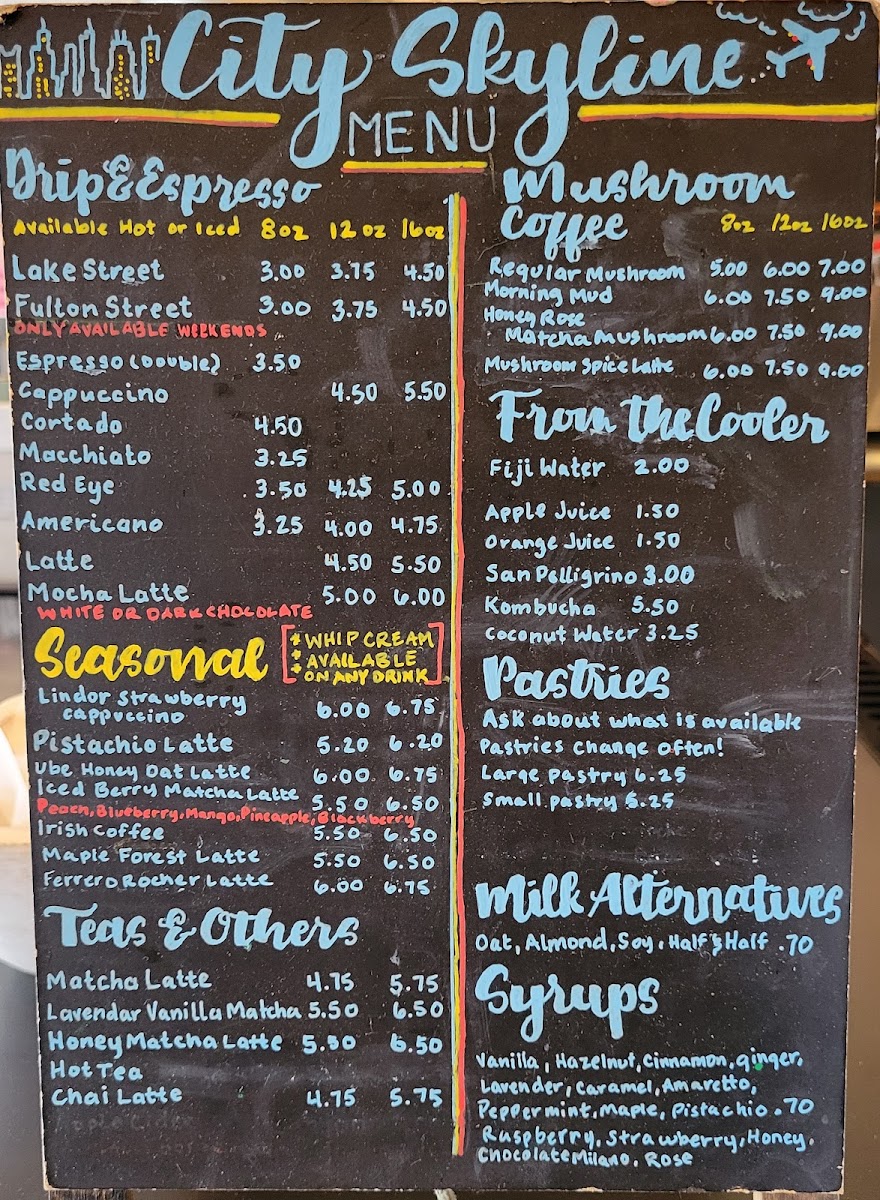 City Skyline
MENU
Drip & Espresso
Available Hot or Iced 8oz 12oz 16oz
Lake Street 3.00 3.75 4.50
Fulton Street 3.00 3.75 4.50
ONLY AVAILABLE WEEKENDS
Espresso (Double) 3.50
Cappuccino 4.50 5.50
Cortado 4.50
Macchiato 3.25
Red Eye 3.50 4.25 5.00
Americano 3.25 4.00 4.75
Latte 4.50 5.50
Mocha Latte 5.00 6.00
WHITE OR DARK CHOCOLATE
Seasonal
WHIP CREAM
AVAILABLE
ON ANY DRINK
Lindor Strawberry
Cappuccino 6.00 6.75
Pistachio Latte 5.20 6.20
Ube Honey Oat Latte 6.00 6.75
Iced Berry Matcha Latte 5.50 6.50
Peach, Blueberry, Mango, Pineapple, Blackberry
Irish Coffee 5.50 6.50
Maple Forest Latte 5.50 6.50
Ferrero Rocher Latte 6.00 6.75
Teas & Others
Matcha Latte 4.75 5.75
Lavendar Vanilla Matcha 5.50 6.50
Honey Matcha Latte 5.50 6.50
Hot Tea
Chai Latte 4.75 5.75
Mushroom
Coffee 8oz 12oz 16oz
Regular Mushroom 5.00 6.00 7.00
Morning Mud 6.00 7.50 9.00
Honey Rose
Matcha Mushroom 6.00 7.50 9.00
Mushroom Spice Latte 6.00 7.50 9.00
From the Cooler
Fiji Water 2.00
Apple Juice 1.50
Orange Juice 1.50
San Pelligrino 3.00
Kombucha 5.50
Coconut Water 3.25
Pastries
Ask about what is available
Pastries change often!
Large pastry 6.25
Small pastry 5.25
Milk Alternatives
Oat, Almond, Soy, Half & Half .70
Syrups
Vanilla, Hazelnut, Cinnamon, ginger,
Lavender, Caramel, Amaretto,
Peppermint, Maple, Pistachio .70
Raspberry, Strawberry, Honey,
Chocolate Milano, Rose